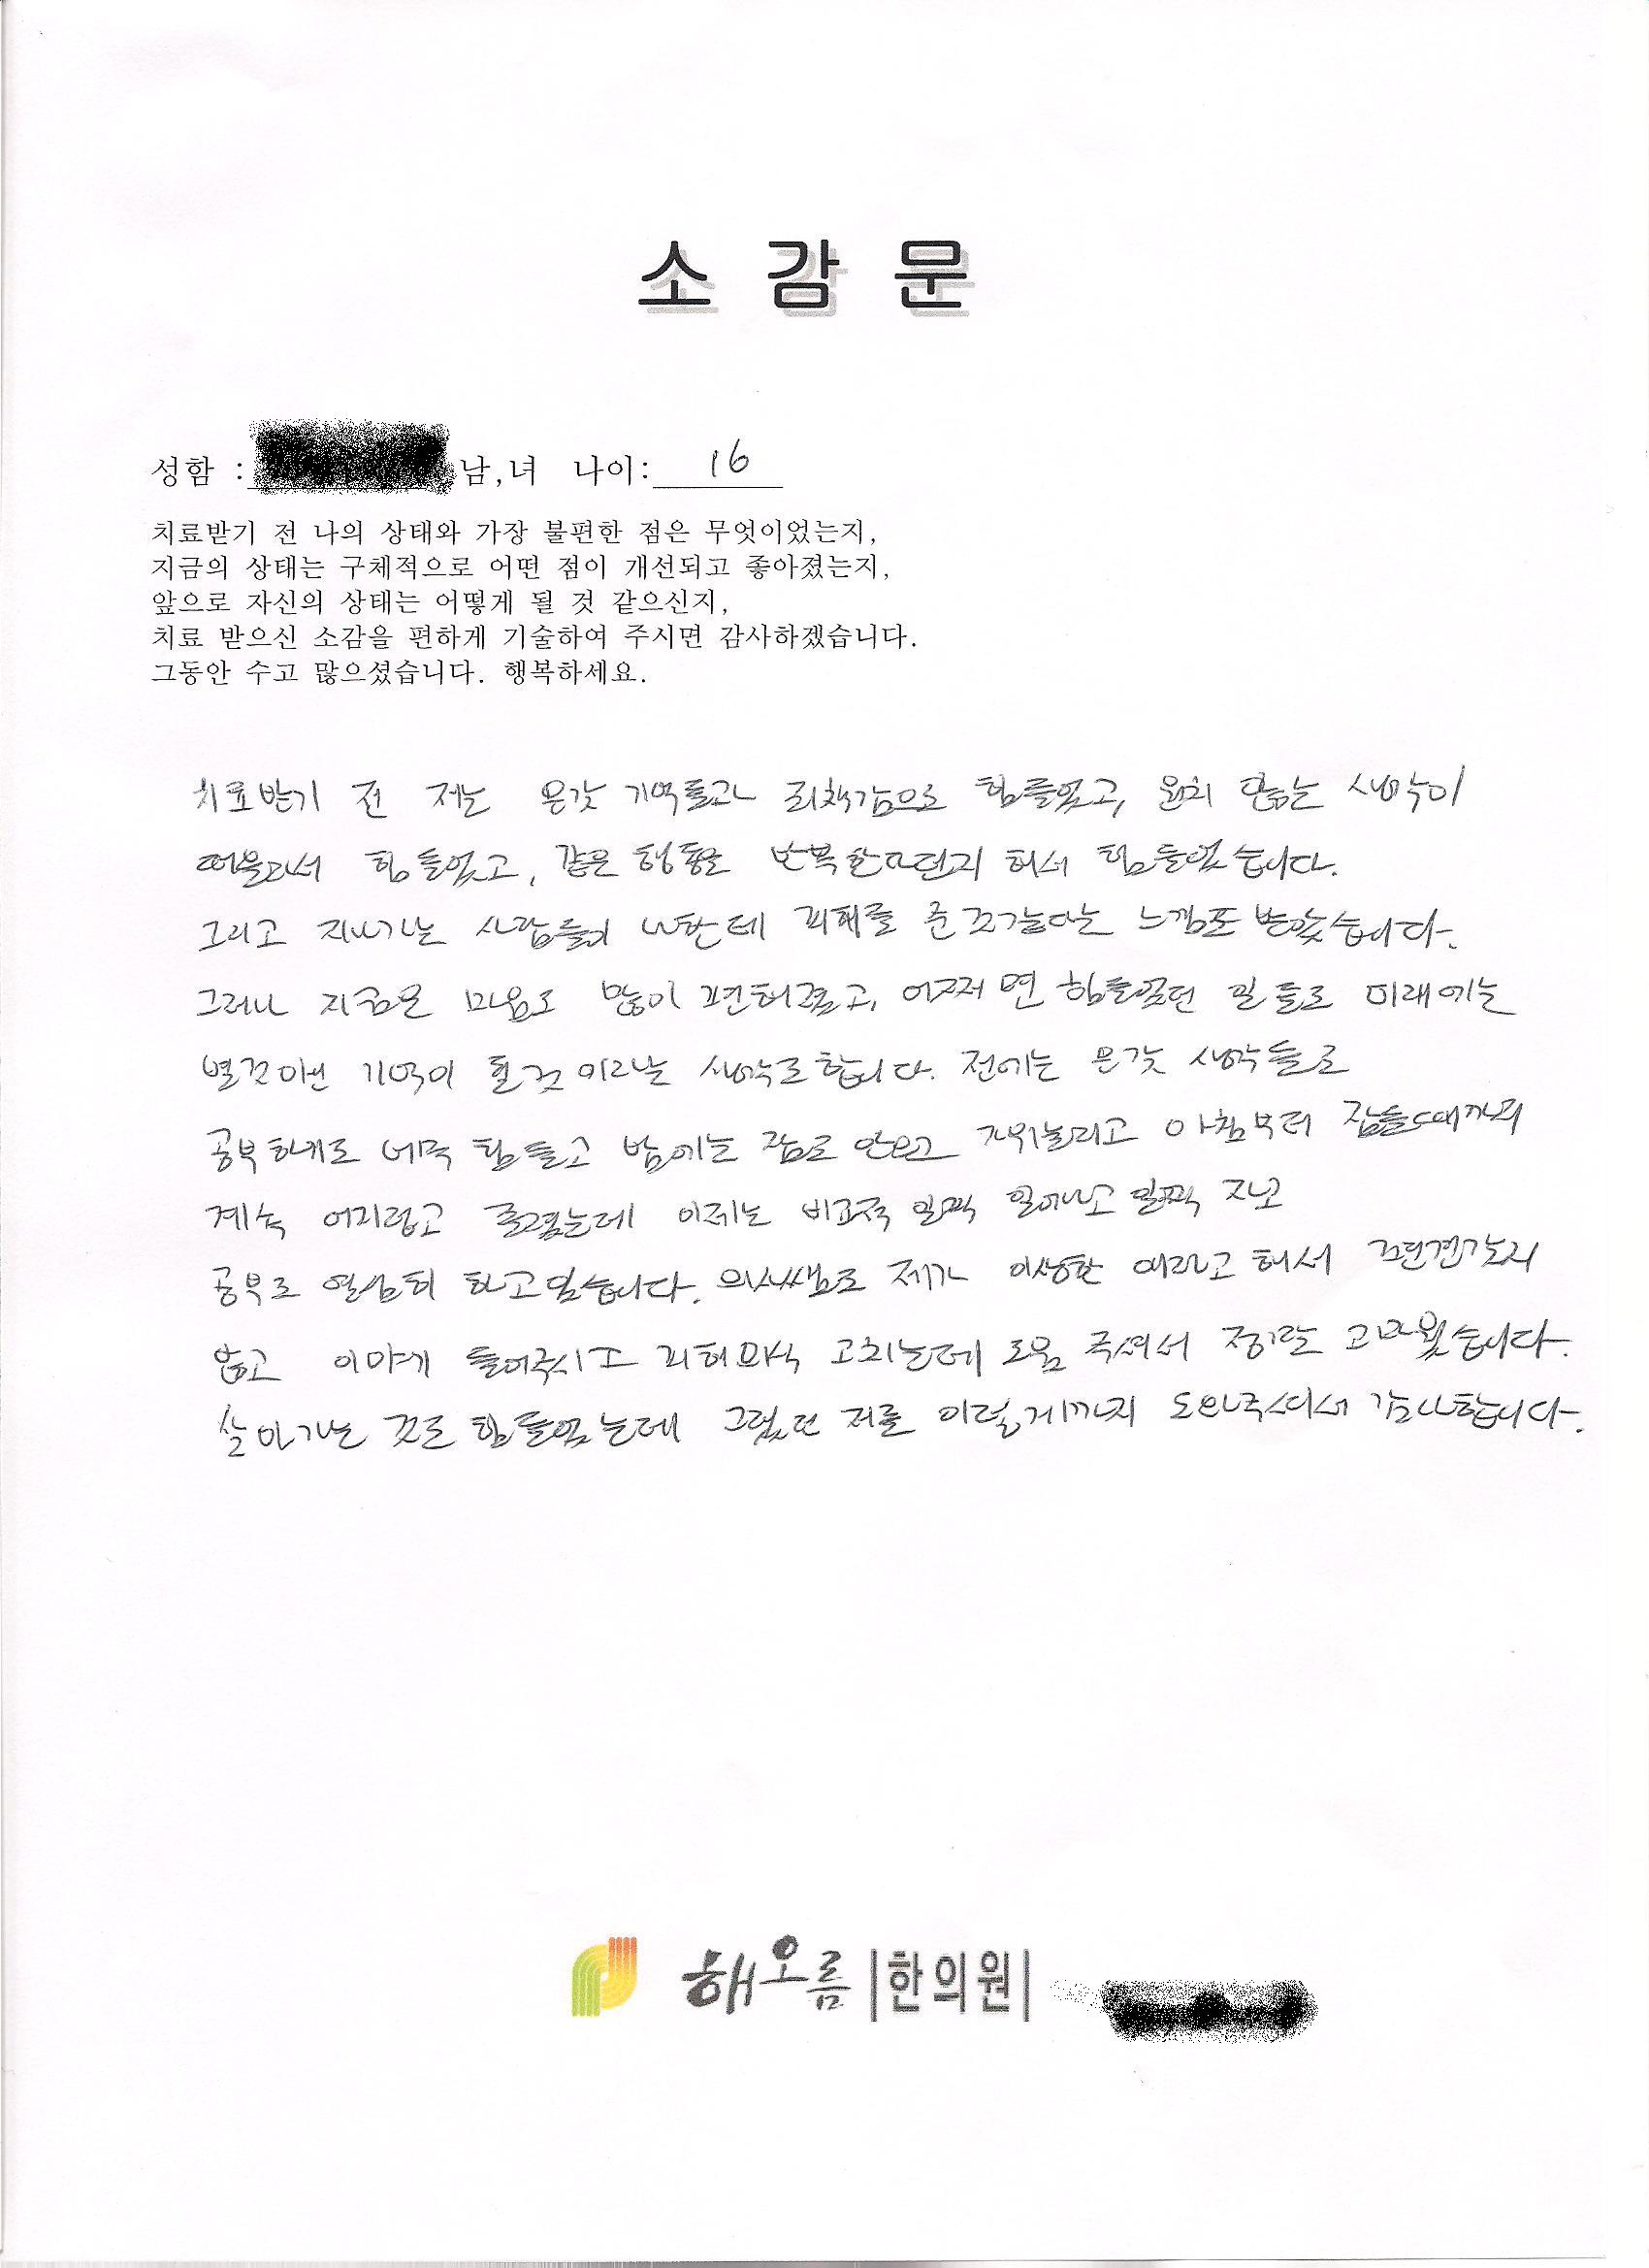 소 감 문
성함 : 남,녀 나이: 16
치료받기 전 나의 상태와 가장 불편한 점은 무엇이었는지,
지금의 상태는 구체적으로 어떤 점이 개선되고 좋아졌는지,
앞으로 자신의 상태는 어떻게 될 것 같으신지,
치료 받으신 소감을 편하게 기술하여 주시면 감사하겠습니다.
그동안 수고 많으셨습니다. 행복하세요.
치료받기 전 저는 온갖 기억들과 죄책감으로 힘들었고, 원치 않는 생각이
떠올라서 힘들었고, 같은 행동을 반복한다던지 해서 힘들었습니다.
그리고 지나가는 사람들이 나한테 피해를 준것같다는 느낌도 받았습니다.
그러나 지금은 마음도 많이 편해졌고, 어쩌면 힘들었던 일들도 미래에는
별것아닌 기억이 될것이라는 생각도합니다. 전에는 온갖 생각들로
공부하기도 힘들고 밤에는 잠도 안오고 가위눌리고 아침부터 잠들때까지
계속 어지럽고 졸렸는데 이제는 비교적 일찍 일어나고 일찍 자고
공부도 열심히 하고있습니다. 의사쌤도 제가 이상한 애라고 해서 편견갖지
않고 이야기 들어주시고 피해의식 고치는데 도움 주셔서 정말 고마웠습니다.
살아가는 것도 힘들었는데 그랬던 저를 이렇게까지 도와주셔서 감사합니다.
해오름 |한의원|